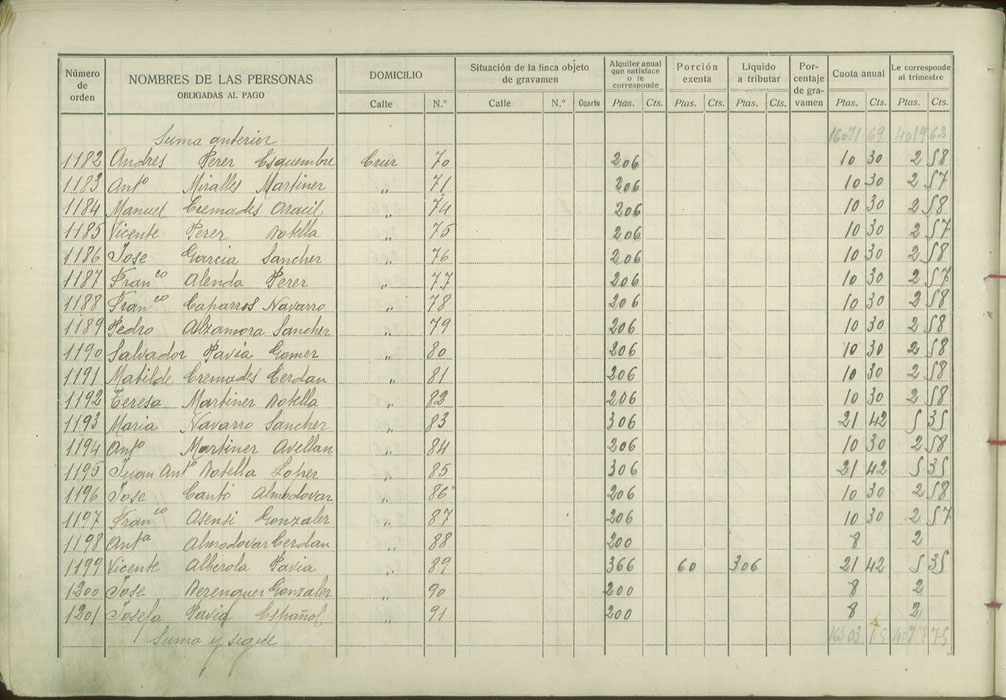 Número de orden | NOMBRES DE LAS PERSONAS OBLIGADAS AL PAGO | DOMICILIO Calle N.º | Situación de la finca objeto de gravamen Calle N.º Cuarto | Alquiler anual que satisface o le corresponde Ptas. Cts. | Porción exenta Ptas. Cts. | Líquido a tributar Ptas. Cts. | Porcentaje de gravamen | Cuota anual Ptas. Cts. | Le corresponde al trimestre Ptas. Cts.
Suma anterior 69 62
1182 Andres Perez Esquembre Cruz 70 206 10 30 2 58
1183 Antº Miralles Martinez " 71 206 10 30 2 57
1184 Manuel Cremades Aracil " 74 206 10 30 2 58
1185 Vicente Perez Botella " 75 206 10 30 2 57
1186 Jose Garcia Sanchez " 76 206 10 30 2 58
1187 Franco Alenda Perez " 77 206 10 30 2 57
1188 Franco Caparros Navarro " 78 206 10 30 2 58
1189 Pedro Alzamora Sanchez " 79 206 10 30 2 58
1190 Salvador Pavia Gomez " 80 206 10 30 2 58
1191 Matilde Cremades Cerdan " 81 206 10 30 2 58
1192 Teresa Martinez Botella " 82 206 10 30 2 58
1193 Maria Navarro Sanchez " 83 306 21 42 5 35
1194 Antº Martinez Avellan " 84 206 10 30 2 58
1195 Juan Antº Botella Lopez " 85 306 21 42 5 35
1196 Jose Cantó Almodovar " 86 206 10 30 2 58
1197 Franco Asensi Gonzalez " 87 206 10 30 2 57
1198 Antª Almodovar Cerdan " 88 200 8 2
1199 Vicente Alberola Pavia " 89 366 60 306 21 42 5 35
1200 Jose Berenguer Gonzalez " 90 200 8 2
1201 Josefa Pavia Español " 91 200 8 2
Suma y sigue